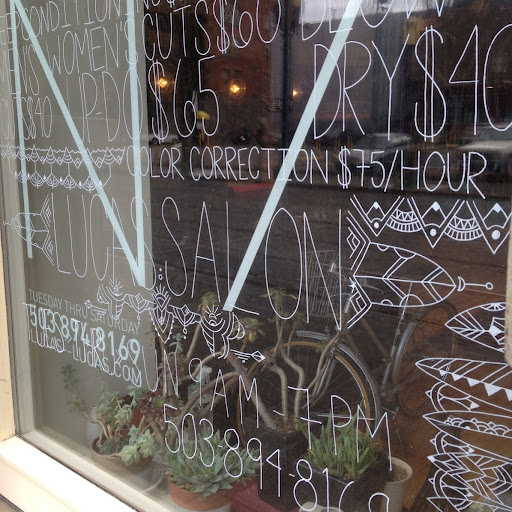 CONDITION
WOMEN'S CUTS $60 BLOW
CUTS $40 UP-DO $65 DRY $40
COLOR CORRECTION $75/HOUR
LUCAS SALON
TUESDAY THRU SATURDAY
503 894 8169
SUN 9AM-7PM
503-894-8169